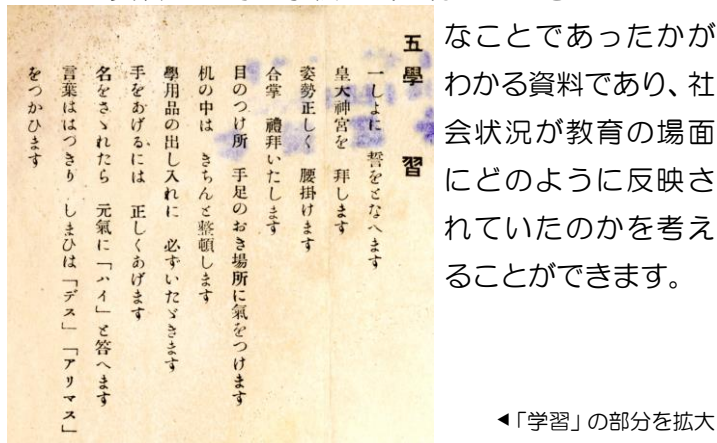 五學 習
一しよに 誓をとなへます
皇大神宮を 拜します
姿勢正しく 腰掛けます
合掌 禮拜いたします
目のつけ所 手足のおき場所に氣をつけます
机の中は きちんと整頓します
學用品の出し入れに 必ずいたゞきます
手をあげるには 正しくあげます
名をさゝれたら 元氣に「ハイ」と答へます
言葉ははつきり しまひは「デス」「アリマス」
をつかひます
なことであったかが
わかる資料であり、社
会状況が教育の場面
にどのように反映さ
れていたのかを考え
ることができます。
◀「学習」の部分を拡大